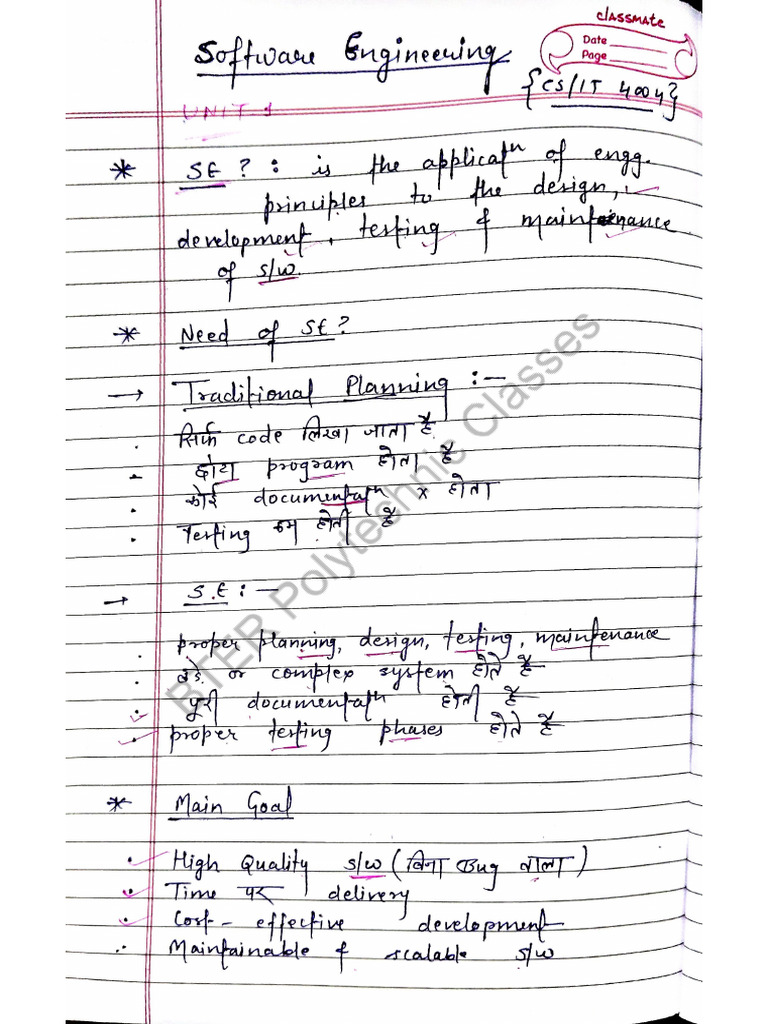 classmate
Date
Page
Software Engineering
{CS/IT 4004}
UNIT 1
* SE ? : is the applicatⁿ of engg.
principles to the design,
development, testing & maintenance
of s/w.
* Need of SE?
→ Traditional Planning :-
. सिर्फ code लिखा जाता है.
- छोटा program होता है
. कोई documentatⁿ x होता
. Testing कम होती है
→ S.E :-
. proper planning, design, testing, maintenance
. बड़े or complex system होते है
. पूरी documentatⁿ होती है
. proper testing phases होते है
* Main Goal
. High Quality s/w (बिना Bug वाला)
. Time पर delivery
. Cost-effective development
. Maintainable & scalable s/w
BTER Polytechnic Classes